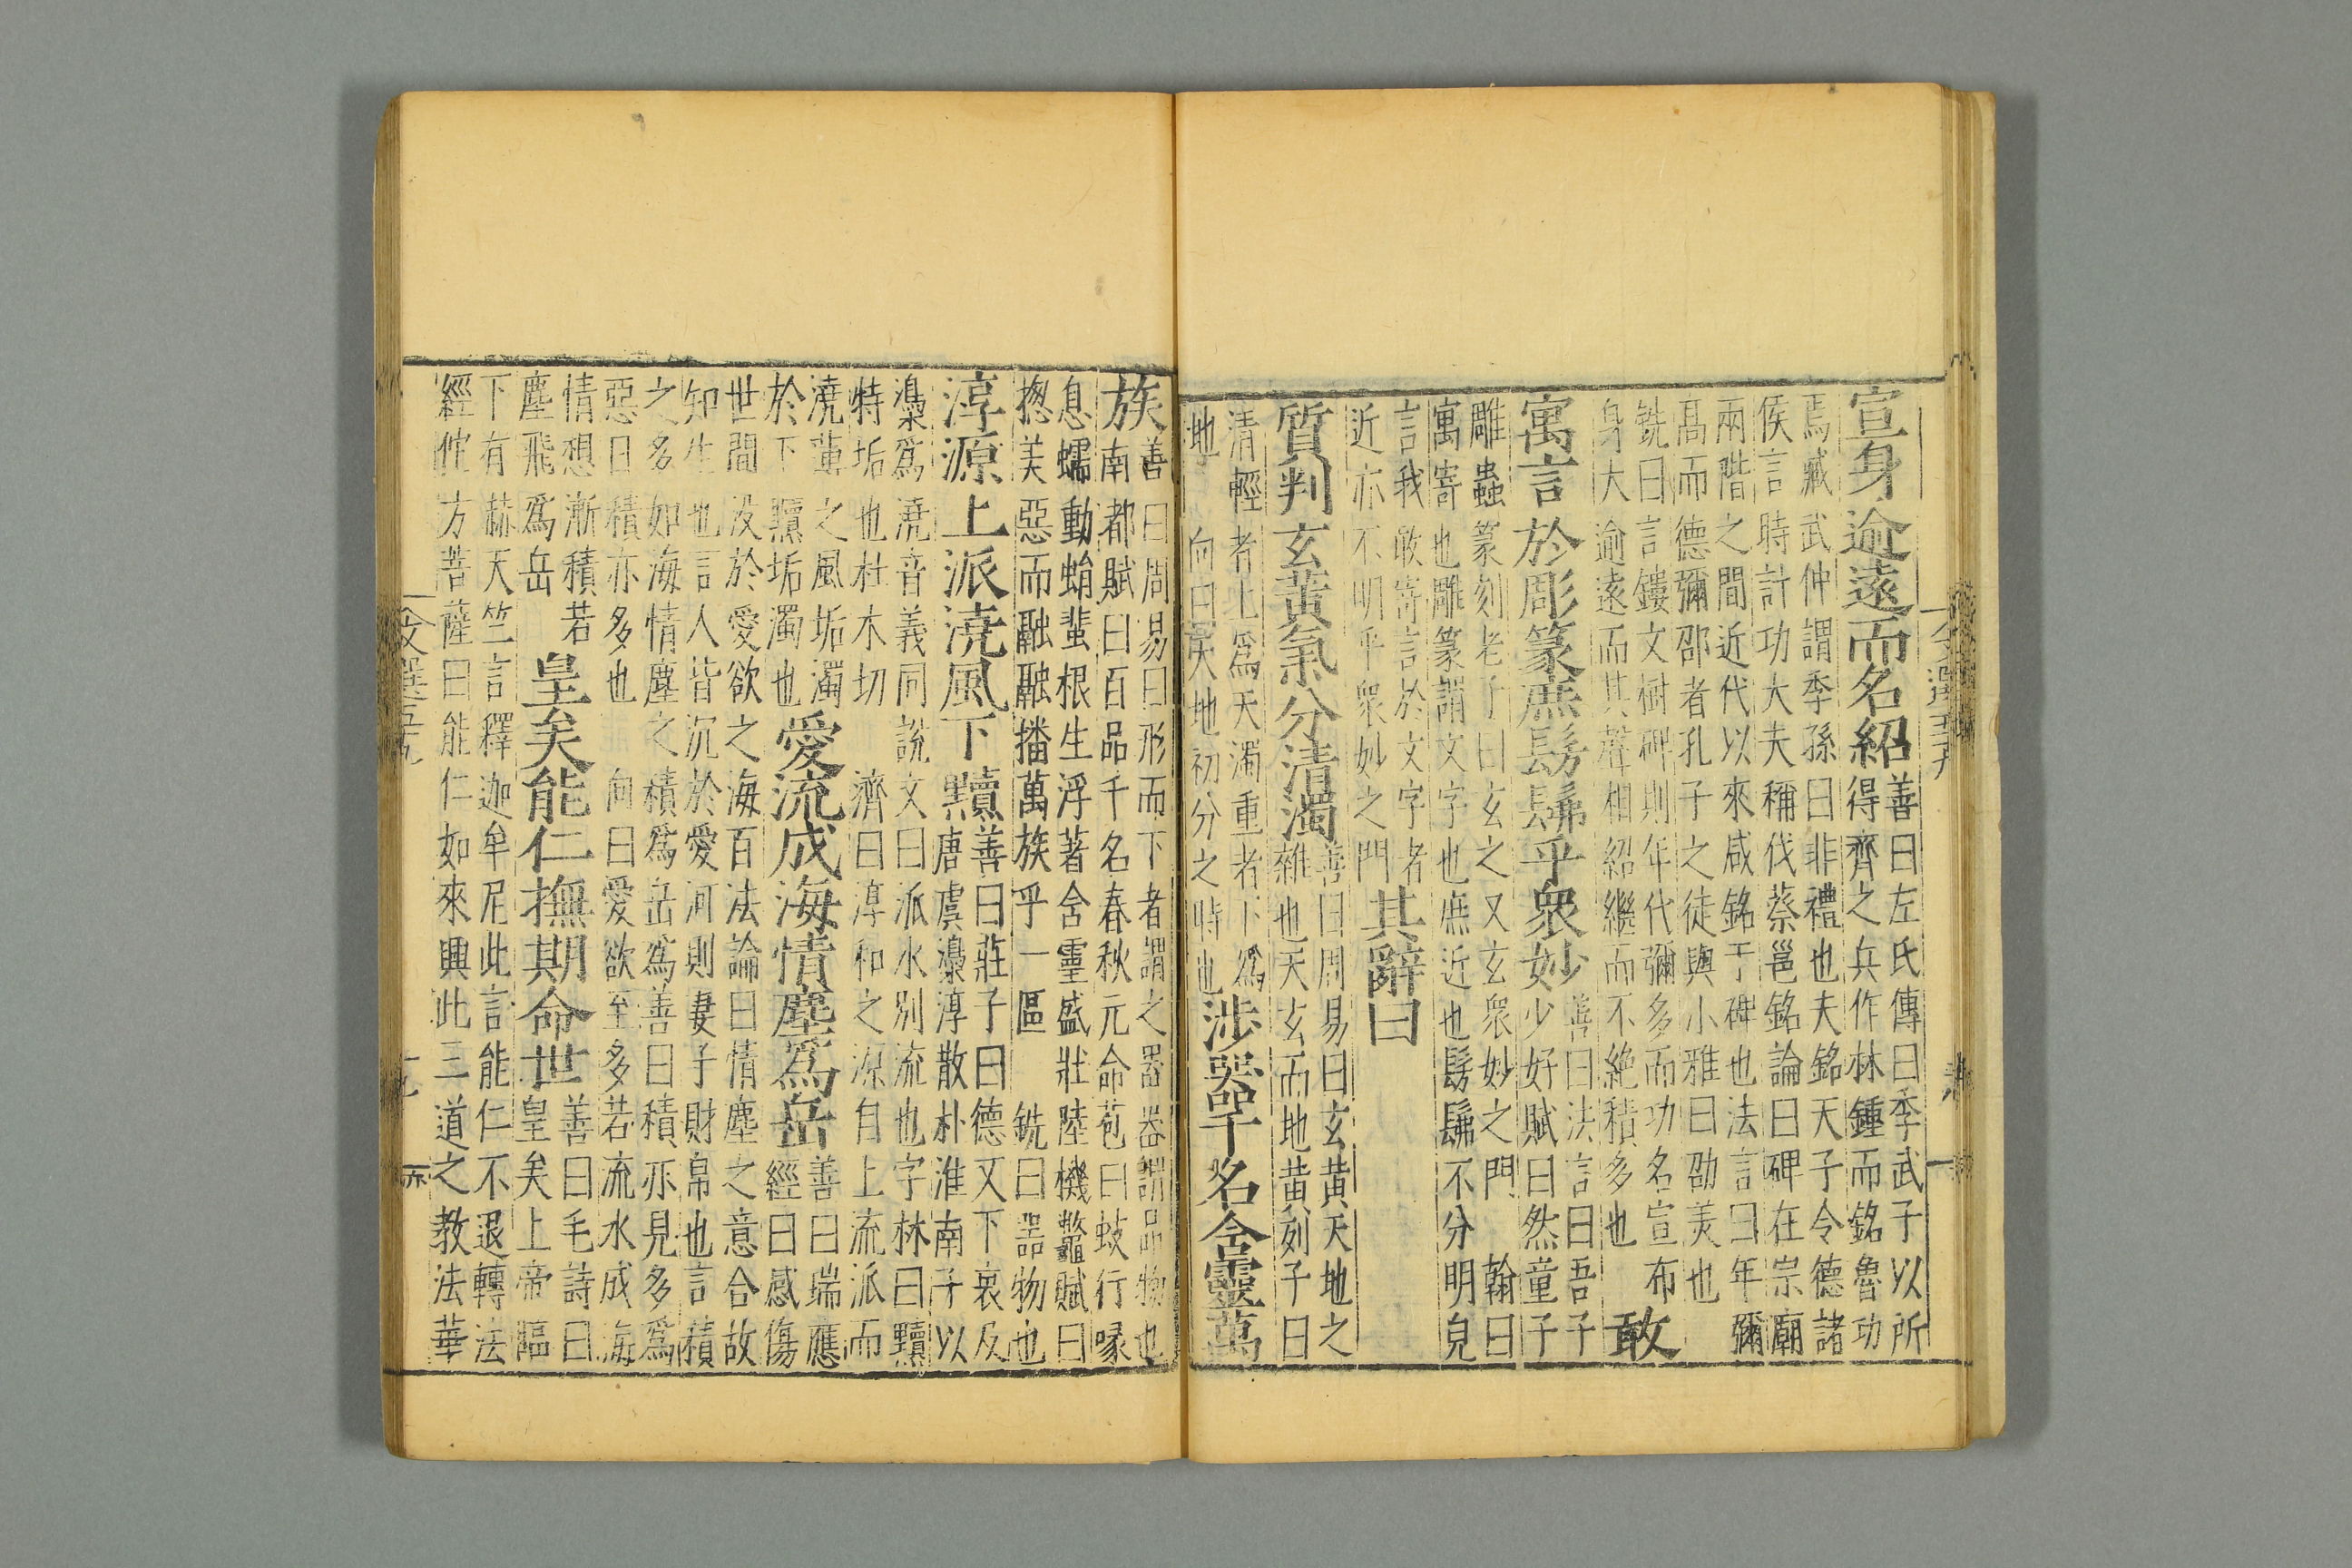 宣身逾遠而名紹
善曰左氏傳曰季武子以所
得齊之兵作林鍾而銘魯功
焉臧武仲謂季孫曰非禮也夫銘天子令德諸
侯言時計功大夫稱伐蔡邕銘論曰碑在宗廟
兩階之間近代以來咸銘于碑也法言曰年彌
髙而德彌邵者孔子之徒與小雅曰邵美也
銑曰言鏤文樹碑則年代彌多而功名宣布
身大逾遠而其聲相紹繼而不絶積多也
敢
寓言於彫篆庶髣髴乎衆妙
善曰法言曰吾子
少好賦曰然童子
雕蟲篆刻老子曰玄之又玄衆妙之門 翰曰
寓寄也雕篆謂文字也庶近也髣髴不分明皃
言我敢寄言於文字者
近亦不明乎衆妙之門
其辭曰
質判玄黃氣分清濁
善曰周易曰玄黃天地之
雜也天玄而地黃列子曰
清輕者上爲天濁重者下爲
地 向曰天地初分之時也
涉器千名含靈萬
族
善曰周易曰形而下者謂之器器謂品物也
南都賦曰百品千名春秋元命苞曰蚑行喙
息蠕動蛸蜚根生浮著含靈盛壯陸機鼈賦曰
揔美惡而融融播萬族乎一區 銑曰噐物也
淳源上派澆風下黷
善曰莊子曰德又下衰及
唐虞澆淳散朴淮南子以
澆爲澆音義同說文曰派水別流也字林曰黷
特垢也杜木切 濟曰淳和之源自上流派而
澆薄之風垢濁
於下黷垢濁也
愛流成海情塵爲岳
善曰瑞應
經曰感傷
世間没於愛欲之海百法論曰情塵之意合故
知生也言人皆沉於愛河則妻子財帛也言積
之多如海情塵之積爲岳爲善曰積亦見多爲
惡曰積亦多也 向曰愛欲至多若流水成海
情想漸積若
塵飛爲岳
皇矣能仁撫期命世
善曰毛詩曰
皇矣上帝臨
下有赫天竺言釋迦牟尼此言能仁不退轉法
經佗方菩薩曰能仁如來興此三道之教法華